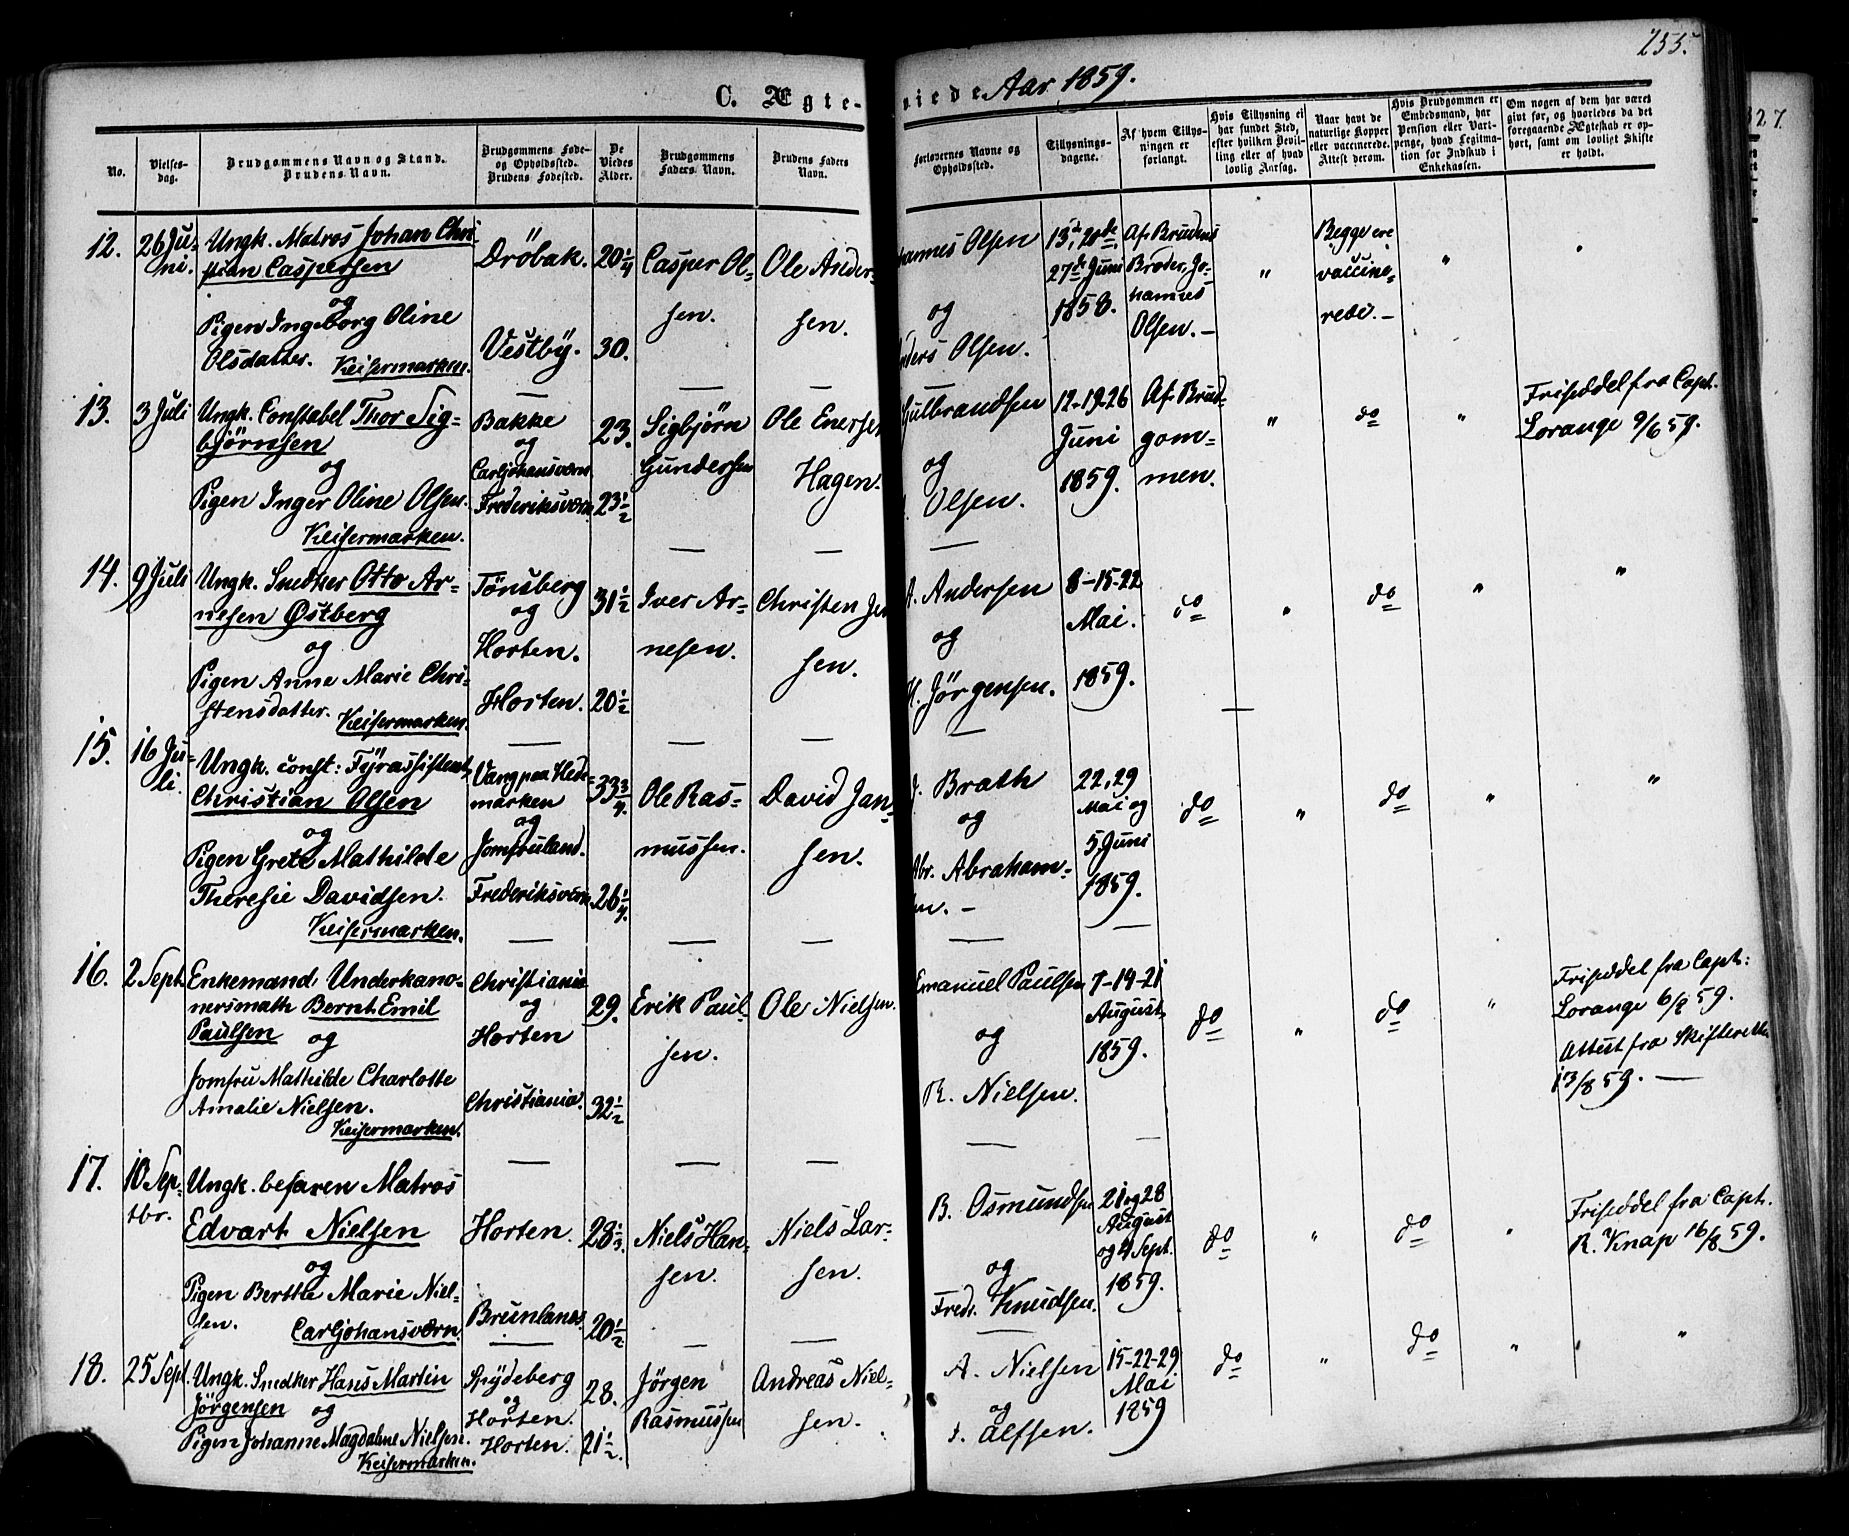 255.
C. Ægte-
viede Aar 1859.
No.
Vielses-
dag.
Brudgommens Navn og Stand.
Brudens Navn.
Brudgommens Føde-
og Opholdssted.
Brudens Fødested.
De
Viedes
Alder.
Brudgommens
Faders Navn.
Brudens Faders
Navn.
Forlovernes Navne og
Opholdssted.
Tillysnings-
dagene.
Af hvem Tillys-
ningen er
forlangt.
Hvis Tillysning ei
har fundet Sted,
efter hvilken Bevil-
ling eller af hvad
lovlig Aarsag.
Naar havt de
naturlige Kopper
eller vaccinerede.
Attest derom.
Hvis Brudgommen er
Embedsmand, har
Pension eller Vart-
penge, hvad Legitima-
tion for Indskud i
Enkekassen.
Om nogen af dem har været
gift før, og hvorledes da det
foregaaende Ægteskab er op-
hørt, samt om lovligt Skifte
er holdt.
327.
12. 26 Ju-
ni.
Ungk. Matros Johan Chri-
stian Caspersen
og
Pigen Ingeborg Oline
Olsdatter. Keisermarken.
Dröbak.
Vestby.
20 1/4
30.
Casper Ol-
sen.
Ole Ander-
sen.
hannes Olsen
og
nders Olsen.
13de, 20de,
27de Juni
1858.
Af Brudens
Broder, Jo-
hannes
Olsen. —
"
Begge ere
vaccine-
rede. —
"
13. 3 Juli
Ungk. Constabel Thor Sig-
bjørnsen
og
Pigen Inger Oline Olsen.
Keisermarken.
Bakke
og
Carljohansværn
Frederiksværn
23.
23 1/2
Sigbjørn
Gundersen
Ole Enersen
Hagen.
Gulbrandsen
og
Olsen.
12-19-26
Juni
1859.
Af Brud-
gom-
men.
"
do
"
Friseddel fra Capt.
Lorange 9/6 59.
14. 9 Juli
Ungk. Snedker Otto Ar-
nesen Østberg
og
Pigen Anne Marie Chri-
stensdatter. Keisermarken.
Tönsberg
og
Horten.
Horten.
31 1/2
20 1/2
Iver Ar-
nesen.
Christen Jen
sen.
A. Andersen
og
H. Jörgensen.
8-15-22
Mai.
1859.
do
"
do
"
"
15. 16 Ju-
li.
Ungk. const: Fyrassistent
Christian Olsen
og
Pigen Grete Mathilde
Theresie Davidsen.
Keisermarken.
Vang paa Hede-
marken
og
Jomfruland.
Frederiksværn
33 3/4.
26 1/4.
Ole Ras-
mussen.
David Jan-
sen.
J. Brath
og
Abr. Abraham-
en. —
22, 29
Mai og
5 Juni
1859.
do
"
do
"
"
16. 2 Sept
Enkemand, Underkano-
nersmath Bernt Emil
Paulsen og
Jomfru Mathilde Charlotte
Amalie Nielsen.
Keisermarken.
Christiania
og
Horten
Christiania.
29.
32 1/2
Erik Paul-
sen.
Ole Nielsen.
Emanuel Paulsen
og
R. Nielsen.
7-14-21
August
1859.
do
"
do
"
Friseddel fra Capt:
Lorange 6/8 59.
Attest fra Skifteretten
13/8 59. —
17. 10 Sep-
tbr.
Ungk. befaren Matros
Edvart Nielsen
og
Pigen Berthe Marie Niel-
sen. Carljohansværn.
Horten.
Brunlanæs.
28 1/3.
20 1/2
Niels Han-
sen.
Niels Lar-
sen.
B. Osmundsen
og
Fredr. Knudsen.
21 og 28
August
og 4 Sept.
1859.
do
"
do
"
Friseddel fra Capt.
R. Knap 16/8 59.
18. 25 Sept
Ungk. Snedker Hans Martin
Jörgensen og
Pigen Johanne Magdalene Nielsen.
Keisermarken.
Spydeberg
og
Horten.
Horten.
28.
21 1/2.
Jörgen
Rasmussen
Andreas Niel-
sen.
A. Nielsen
og
Alfsen.
15-22-29
Mai
1859
do
"
do
"
"